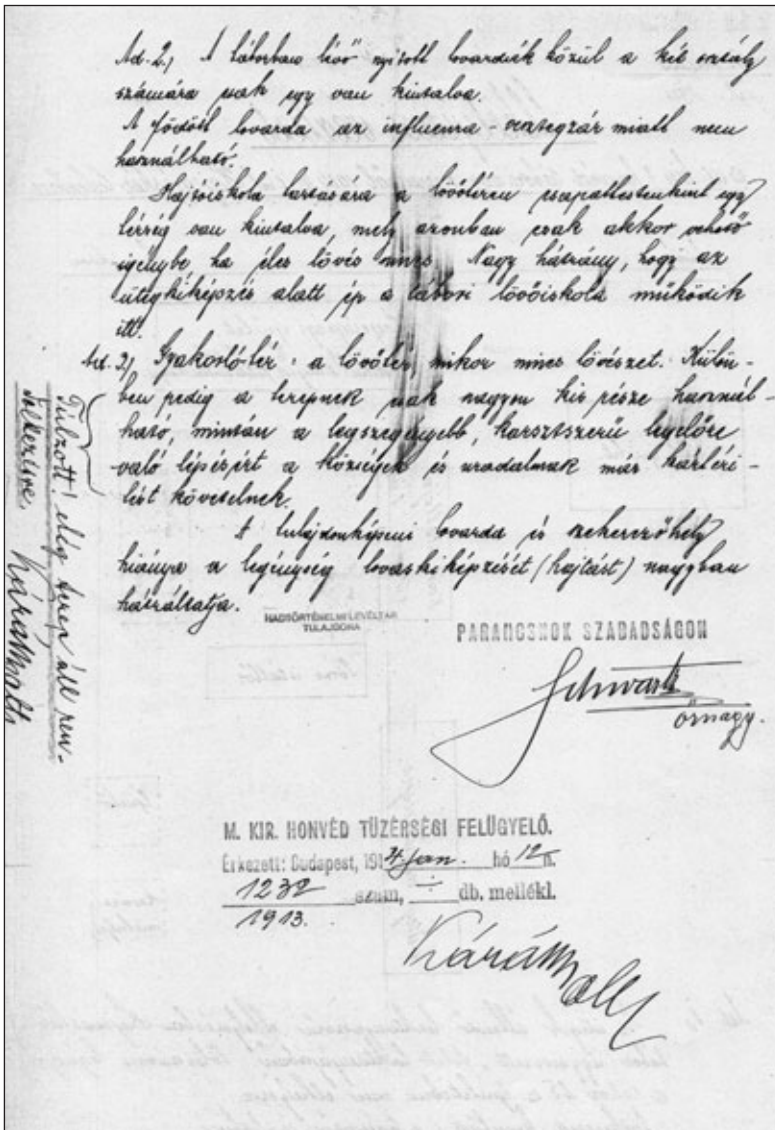 Ad. 2.) A táborban lévő nyitott lovardák közül a két osztály
számára csak egy van kiutalva.
A födött lovarda az influenza-vesztegzár miatt nem
használható.
Hajtóiskola tartására a lövőtéren csapattestenkint egy
térség van kiutalva, mely azonban csak akkor vehető
igénybe ha éles lövés nincs. Nagy hátrány, hogy az
ütegkiképzés alatt ép a tábori lövőiskola működik
itt.
Ad. 3) Gyakorlótér: a lövőtér, mikor nincs lövészet. Külön-
ben pedig a terepnek csak nagyon kis része használ-
ható, mintán a legszegényebb, karsztszerű legelőre
való lépésért a községek és uradalmak már kártéri-
tést követelnek.
A tulajdonképeni lovarda és szekerezőhely
hiánya a legénység lovaskiképzését (hajtást) nagyban
hátráltatja.
Túlzott! elég terep áll ren-
delkezésre. Káráthsolt
HADTÖRTÉNELMI LEVÉLTÁR
TULAJDONA
PARANCSNOK SZABADSÁGON
Schwartz
őrnagy.
M. KIR. HONVÉD TÜZÉRSÉGI FELÜGYELŐ.
Érkezett: Budapest, 1914 jan. hó 12 n.
1232 szám, ÷ db. mellékl.
1913.